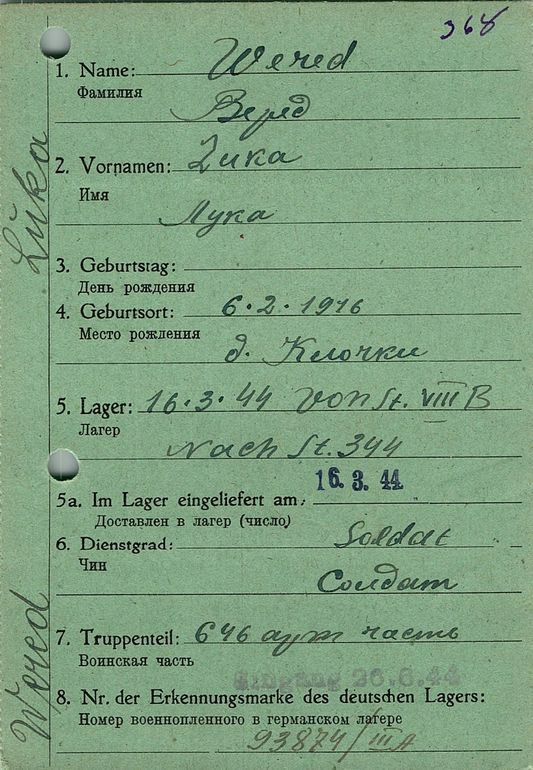 368
1. Name: Wered
Фамилия
Веред
2. Vornamen: Luka
Имя
Лука
3. Geburtstag:
День рождения
4. Geburtsort: 6.2.1916
Место рождения
д. Клочки
5. Lager: 16.3.44 von St. VIII B
Лагер
nach St. 344
5a. Im Lager eingeliefert am: 16. 3. 44
Доставлен в лагер (число)
6. Dienstgrad: Soldat
Чин
Солдат
7. Truppenteil: 646 арт часть
Воинская часть
Eingang 26.6.44
8. Nr. der Erkennungsmarke des deutschen Lagers:
Номер военнопленного в германском лагере
93874/III A
Wered Luka